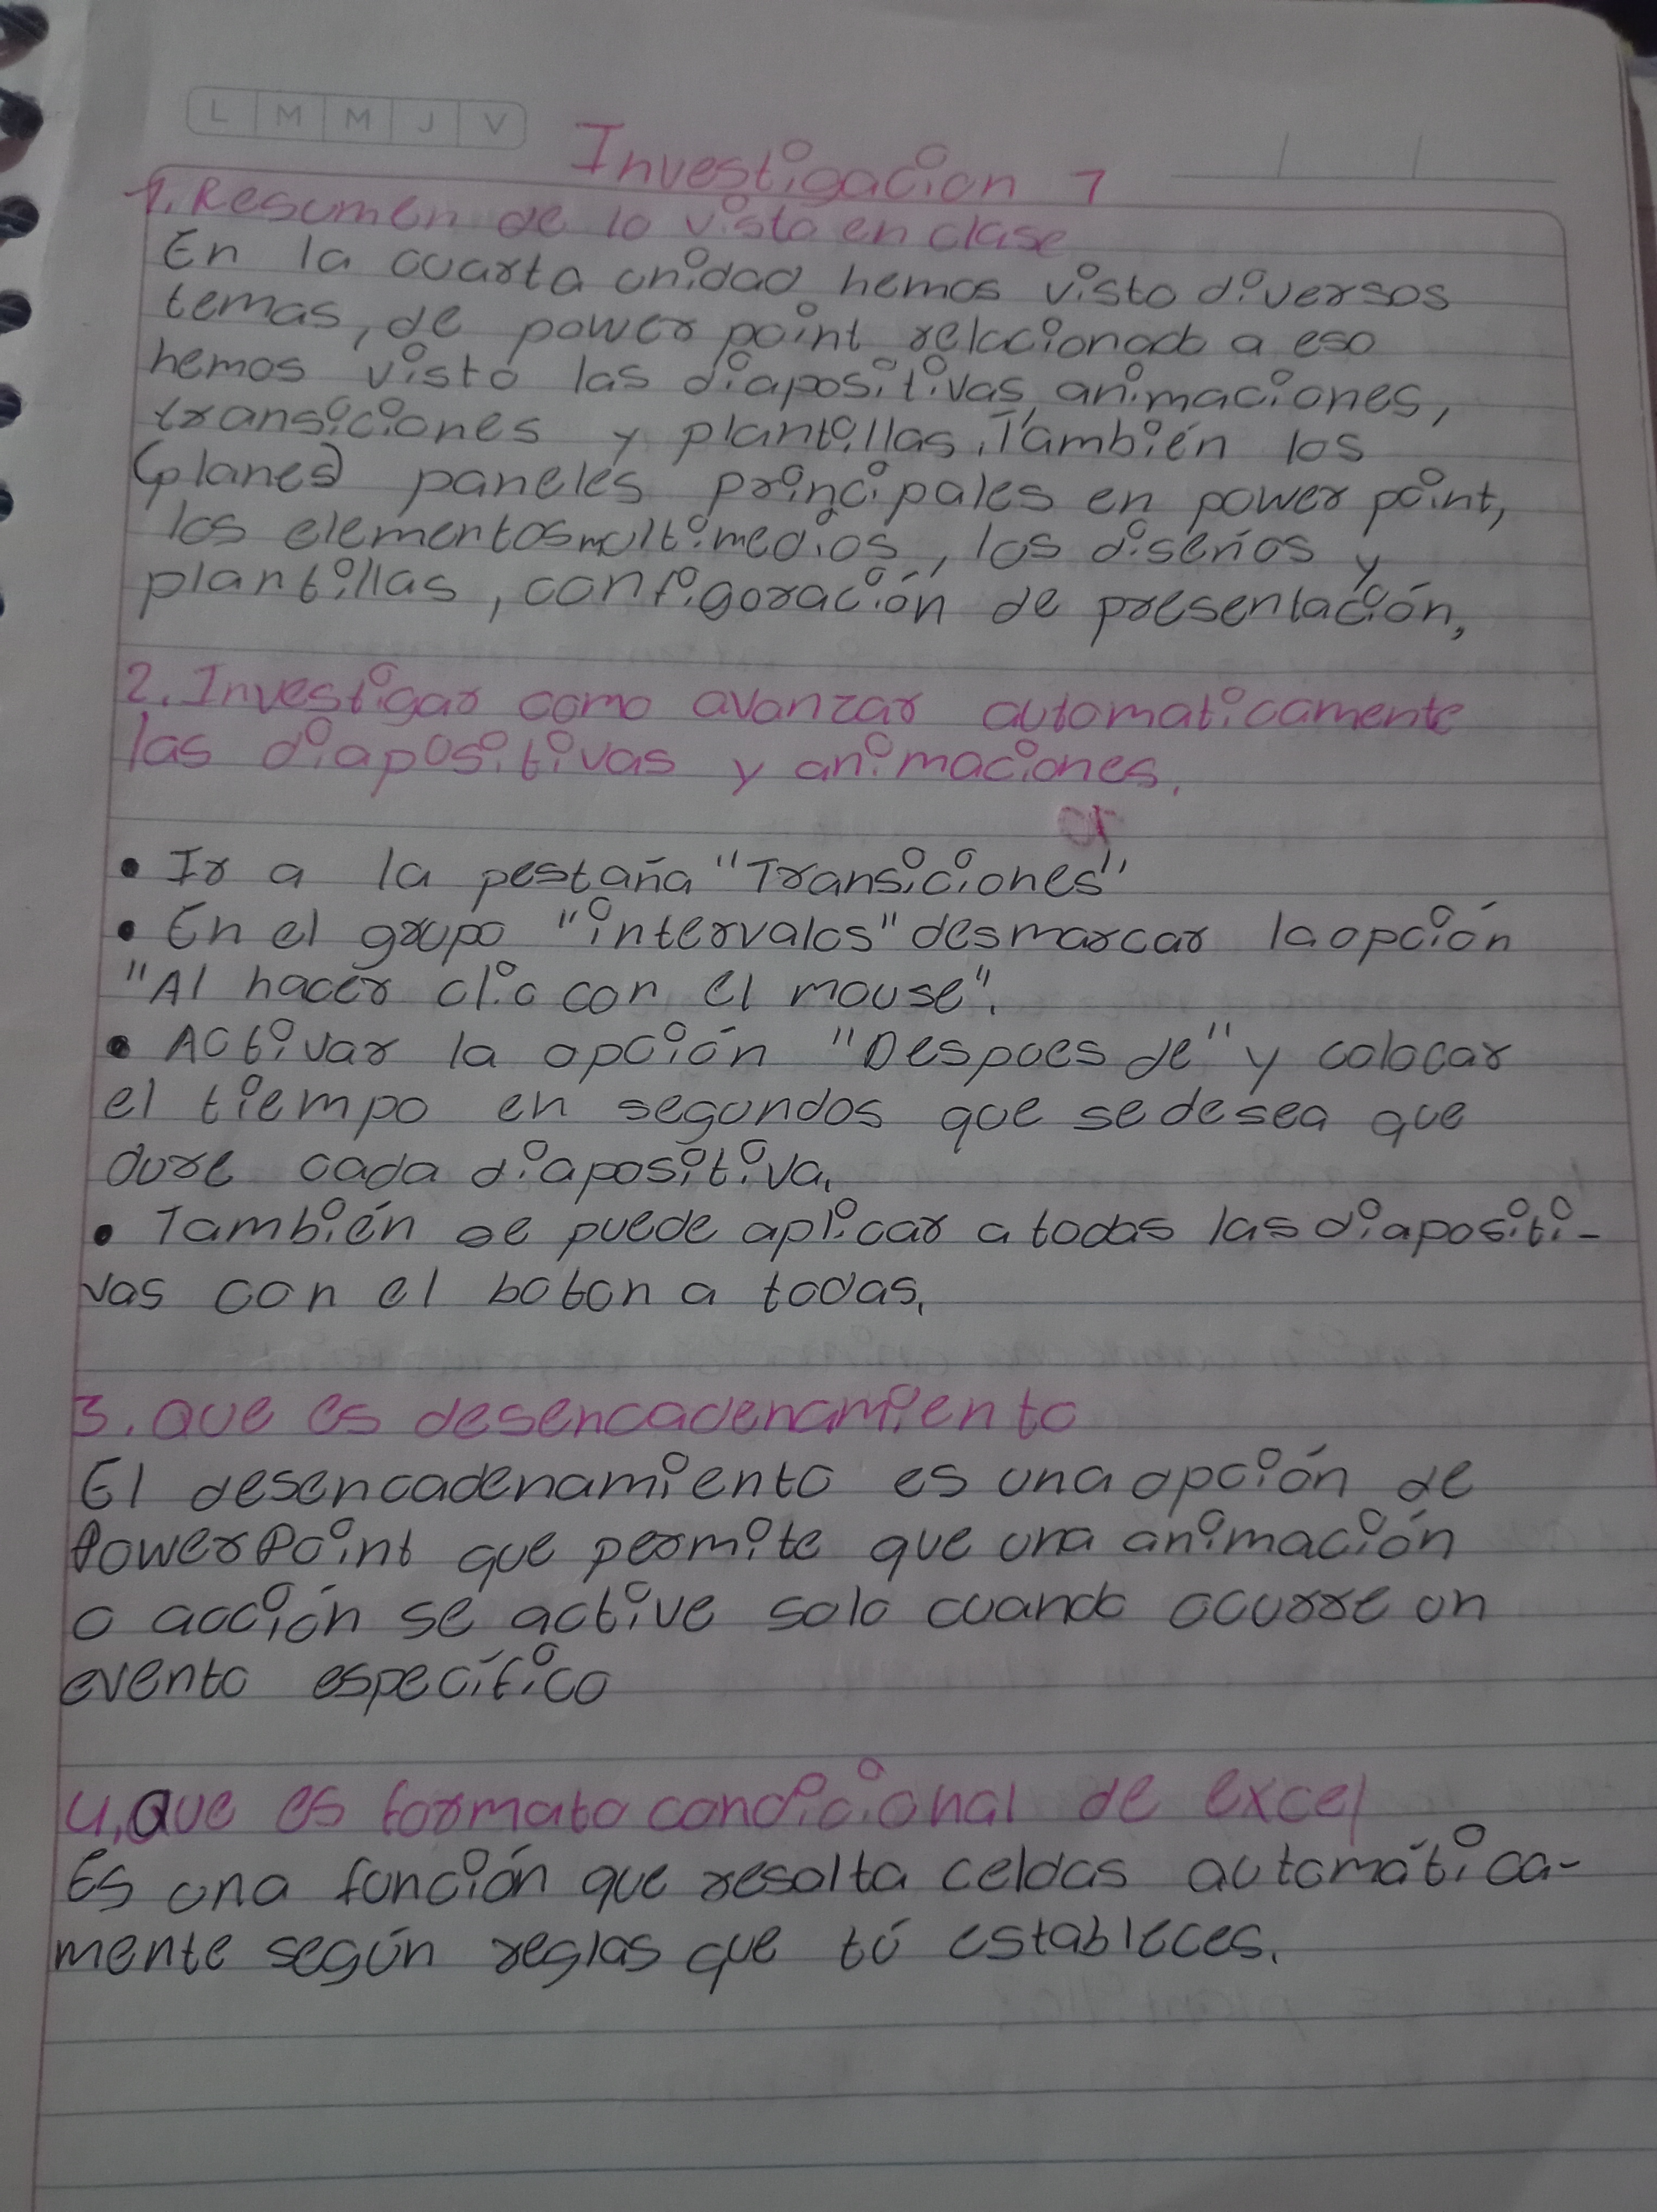 L M M J V
Investigacion 7
1. Resumen de lo visto en clase
En la cuarta unidad hemos visto diversos
temas, de power point relacionado a eso
hemos visto las diapositivas, animaciones,
transiciones y plantillas, También los
(planes) paneles principales en power point,
los elementos multimedios, los diseños y
plantillas, configuración de presentación,
2. Investigar como avanzar automaticamente
las diapositivas y animaciones.
• Ir a la pestaña "Transiciones"
• En el grupo "intervalos" desmarcar la opción
"Al hacer clic con el mouse".
• Activar la opción "Despues de" y colocar
el tiempo en segundos que se desea que
dure cada diapositiva.
• También se puede aplicar a todas las diapositi-
vas con el boton a todas.
3. Que es desencadenamiento
El desencadenamiento es una opción de
PowerPoint que permite que una animación
o acción se active solo cuando ocurre un
evento específico
4. Que es formato condicional de excel
Es una función que resalta celdas automática-
mente según reglas que tú estableces.